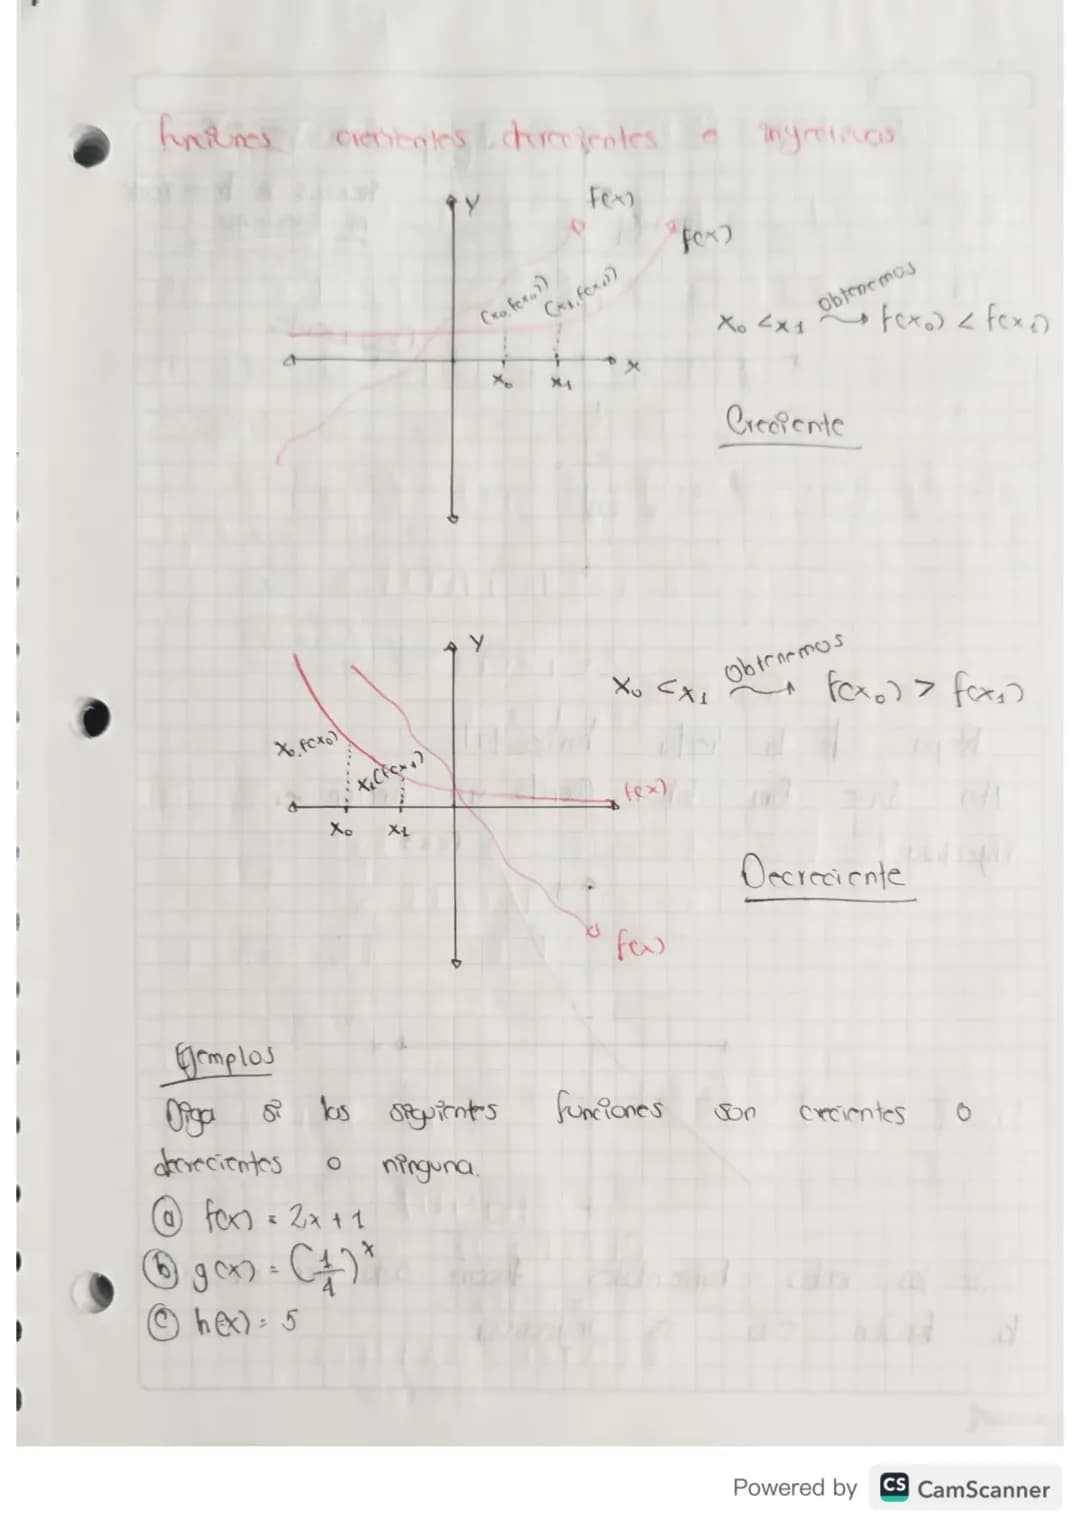 funciones crecientes, decrecientes e inyectivas
Y
f(x)
f(x)
(x₀, f(x₀))
(x₁, f(x₁))
x₀ < x₁ obtenemos f(x₀) < f(x₁)
x
x₀
x₁
Creciente
Y
x₀ < x₁ obtenemos f(x₀) > f(x₁)
x₀, f(x₀)
x₁(f(x₁)
f(x)
x₀
x₁
Decreciente
f(x)
Ejemplos
Diga si las siguientes funciones son crecientes o
decrecientes o ninguna.
a f(x) = 2x + 1
b g(x) = (1/4)ˣ
c h(x) = 5
Powered by CS CamScanner